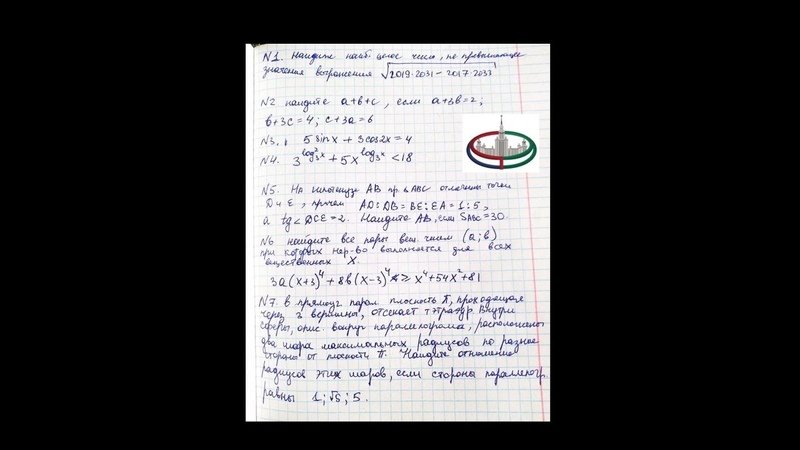 N1. Найдите наиб. целое число, не превышающее
значения выражения √2019·2031 − 2017·2033
N2 найдите a+b+c, если a+3b=2;
b+3c=4; c+3a=6
N3. 5 sinx + 3cos2x = 4
N4. 3^log₃²x + 5x^log₃x < 18
N5. На гипотенузе AB пр. Δ ABC отмечены точки
D и E, причем AD:DB = BE:EA = 1:5,
а tg∠DCE = 2. Найдите AB, если SABC = 30.
N6 найдите все пары вещ. чисел (a; b)
при которых нер-во выполняется для всех
вещественных X.
3a(x+3)⁴ + 8b(x−3)⁴ ≥ x⁴+54x²+81
N7. В прямоуг парал. плоскость П, проходящая
через 3 вершины, отсекает тэтраэдр. Внутри
сферы, опис. вокруг параллелограма, расположены
два шара максимальных радиусов по разные
стороны от плоскости П. Найдите отношение
радиусов этих шаров, если стороны паралелогр.
равны 1; √5; 5.